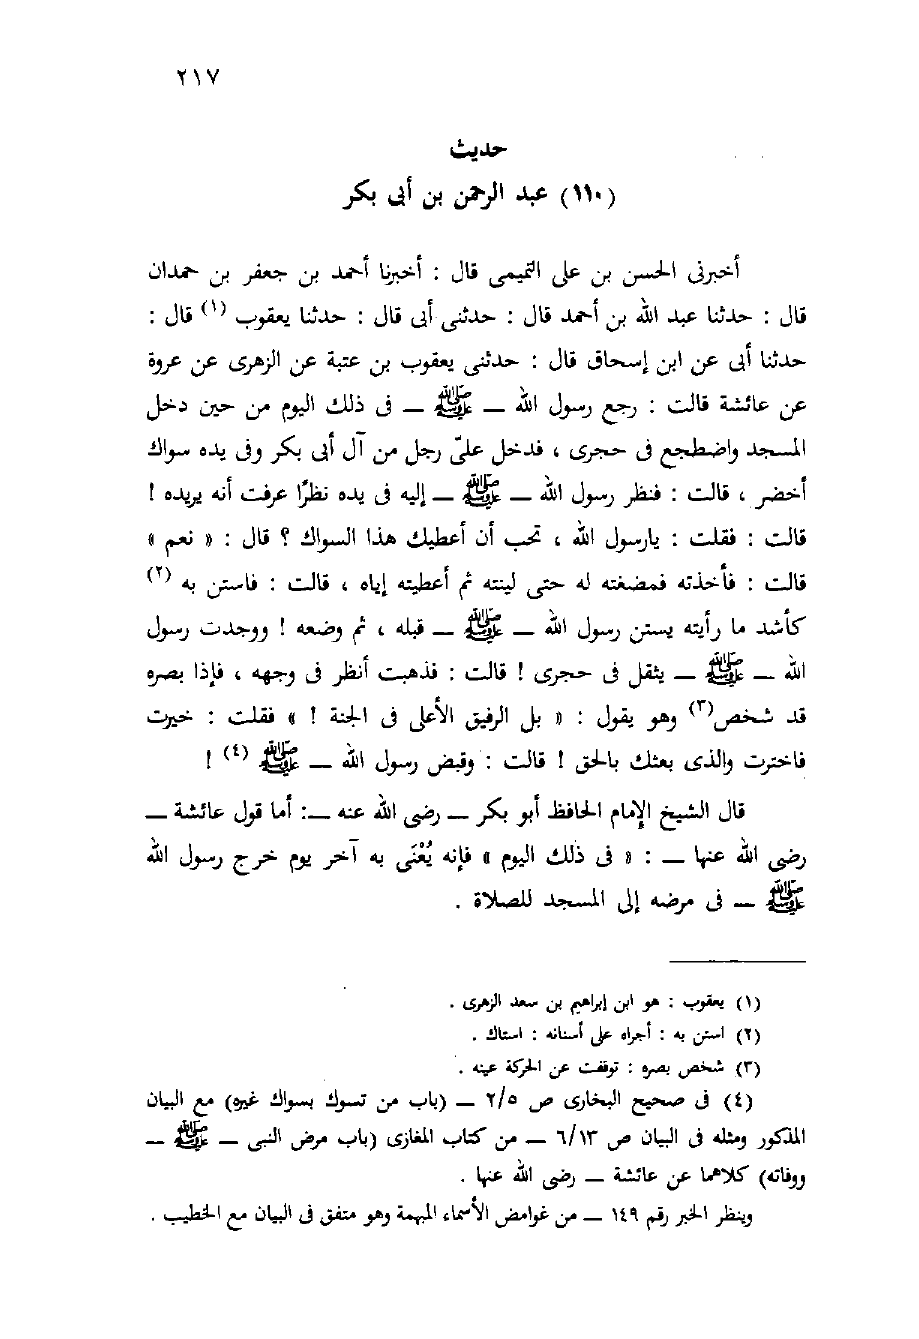 ٢١٧
حديث
(١١٠) عبد الرحمن بن أبى بكر
أخبرنى الحسن بن على التميمى قال : أخبرنا أحمد بن جعفر بن حمدان
قال : حدثنا عبد الله بن أحمد قال : حدثنى أبى قال : حدثنا يعقوب (١) قال :
حدثنا أبى عن ابن إسحاق قال : حدثنى يعقوب بن عتبة عن الزهرى عن عروة
عن عائشة قالت : رجع رسول الله — ﷺ — فى ذلك اليوم من حين دخل
المسجد واضطجع فى حجرى ، فدخل علىّ رجل من آل أبى بكر وفى يده سواك
أخضر ، قالت : فنظر رسول الله — ﷺ — إليه فى يده نظرًا عرفت أنه يريده !
قالت : فقلت : يارسول الله ، تحب أن أعطيك هذا السواك ؟ قال : « نعم »
قالت : فأخذته فمضغته له حتى لينته ثم أعطيته إياه ، قالت : فاستن به (٢)
كأشد ما رأيته يستن رسول الله — ﷺ — قبله ، ثم وضعه ! ووجدت رسول
الله — ﷺ — يثقل فى حجرى ! قالت : فذهبت أنظر فى وجهه ، فإذا بصره
قد شخص(٣) وهو يقول : « بل الرفيق الأعلى فى الجنة ! » فقلت : خيرت
فاخترت والذى بعثك بالحق ! قالت : وقبض رسول الله — ﷺ (٤) !
قال الشيخ الإمام الحافظ أبو بكر — رضى الله عنه —: أما قول عائشة —
رضى الله عنها — : « فى ذلك اليوم » فإنه يُعْنَى به آخر يوم خرج رسول الله
ﷺ — فى مرضه إلى المسجد للصلاة .
(١) يعقوب : هو ابن إبراهيم بن سعد الزهرى .
(٢) استن به : أجراه على أسنانه : استاك .
(٣) شخص بصره : توقفت عن الحركة عينه .
(٤) فى صحيح البخارى ص ٢/٥ — (باب من تسوك بسواك غيره) مع البيان
المذكور ومثله فى البيان ص ٦/١٣ — من كتاب المغازى (باب مرض النبى — ﷺ —
ووفاته) كلاهما عن عائشة — رضى الله عنها .
وينظر الخبر رقم ١٤٩ — من غوامض الأسماء المبهمة وهو متفق فى البيان مع الخطيب .